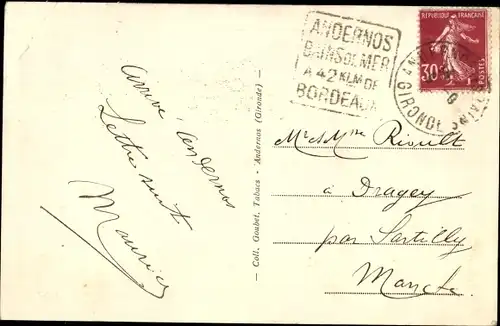 Arrivé Andernos
Lettre suit
Maurice
Coll. Goubet, Tabacs - Andernos (Gironde)
ANDERNOS
BAINS DE MER
A 42 KLM DE
BORDEAUX
RÉPUBLIQUE FRANÇAISE
30
POSTES
GIRONDE
Mr & Mme Rioult
à Dragey
par Sartilly
Manche